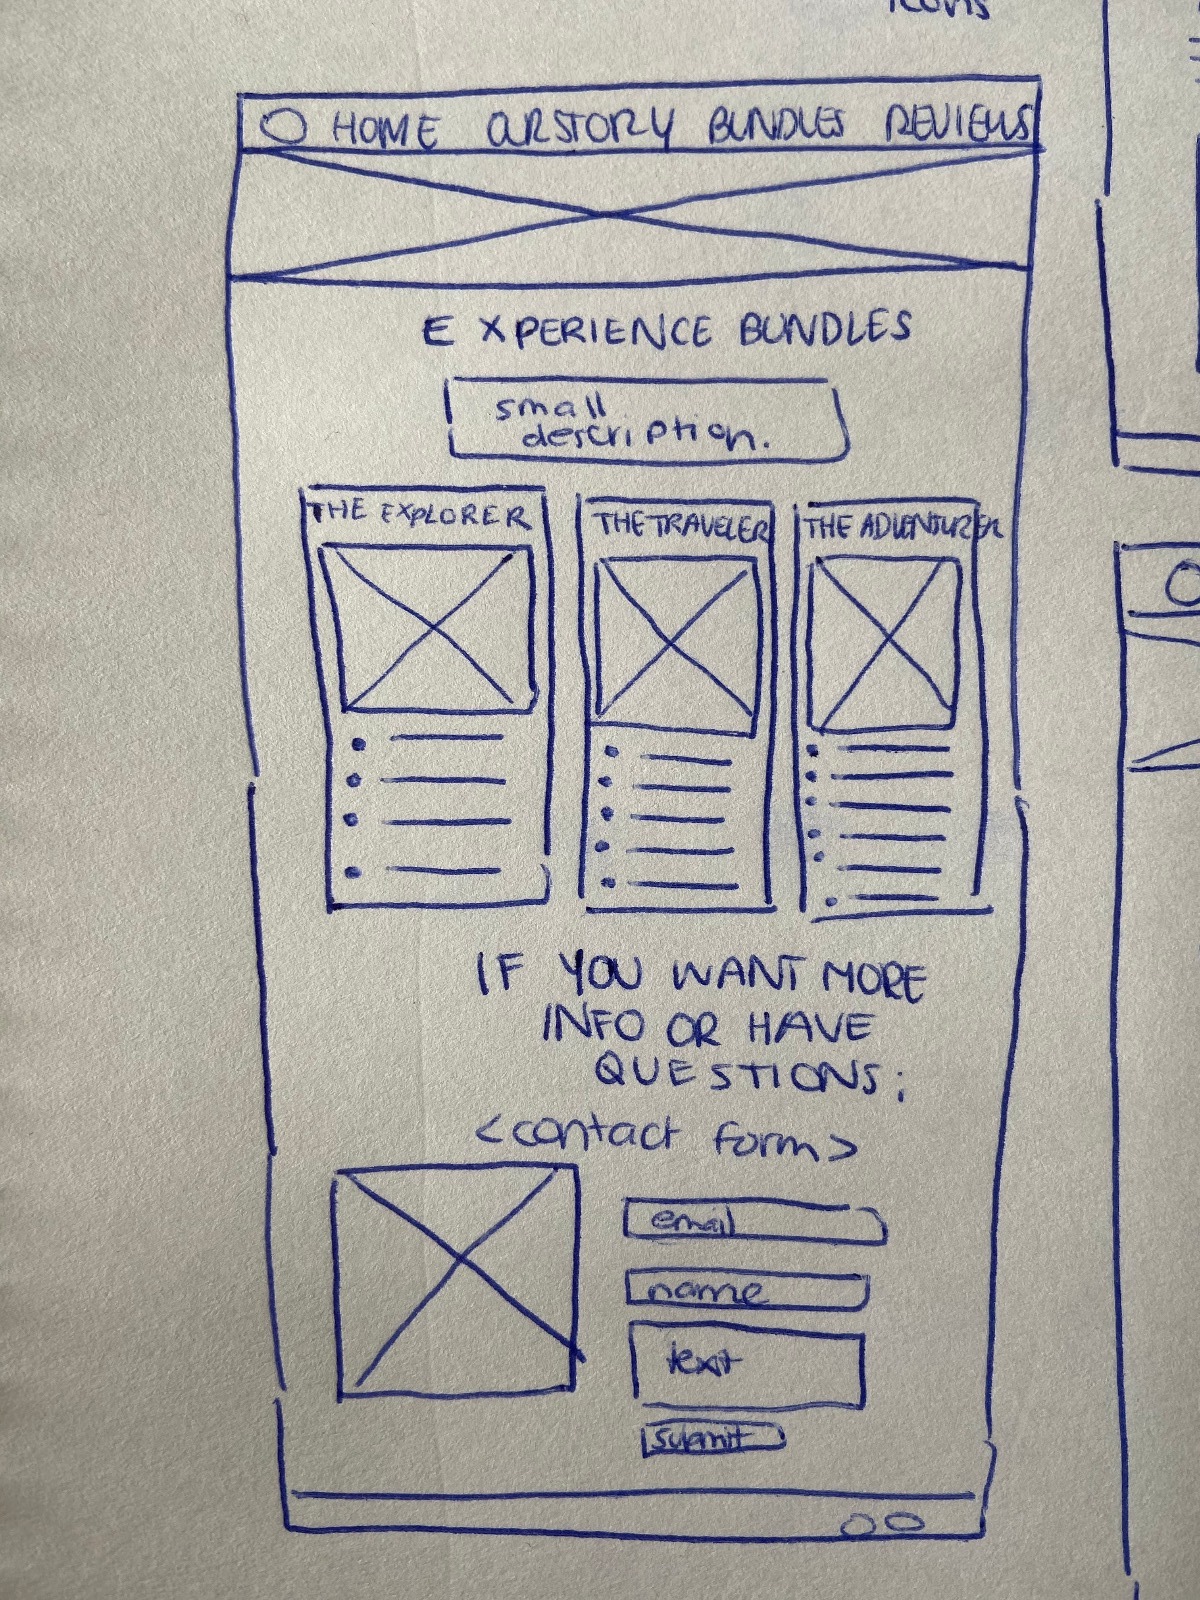 icons
HOME OURSTORY BUNDLES REVIEWS
EXPERIENCE BUNDLES
small
description.
THE EXPLORER
THE TRAVELER
THE ADVENTURER
IF YOU WANT MORE
INFO OR HAVE
QUESTIONS;
<contact form>
email
name
text
submit